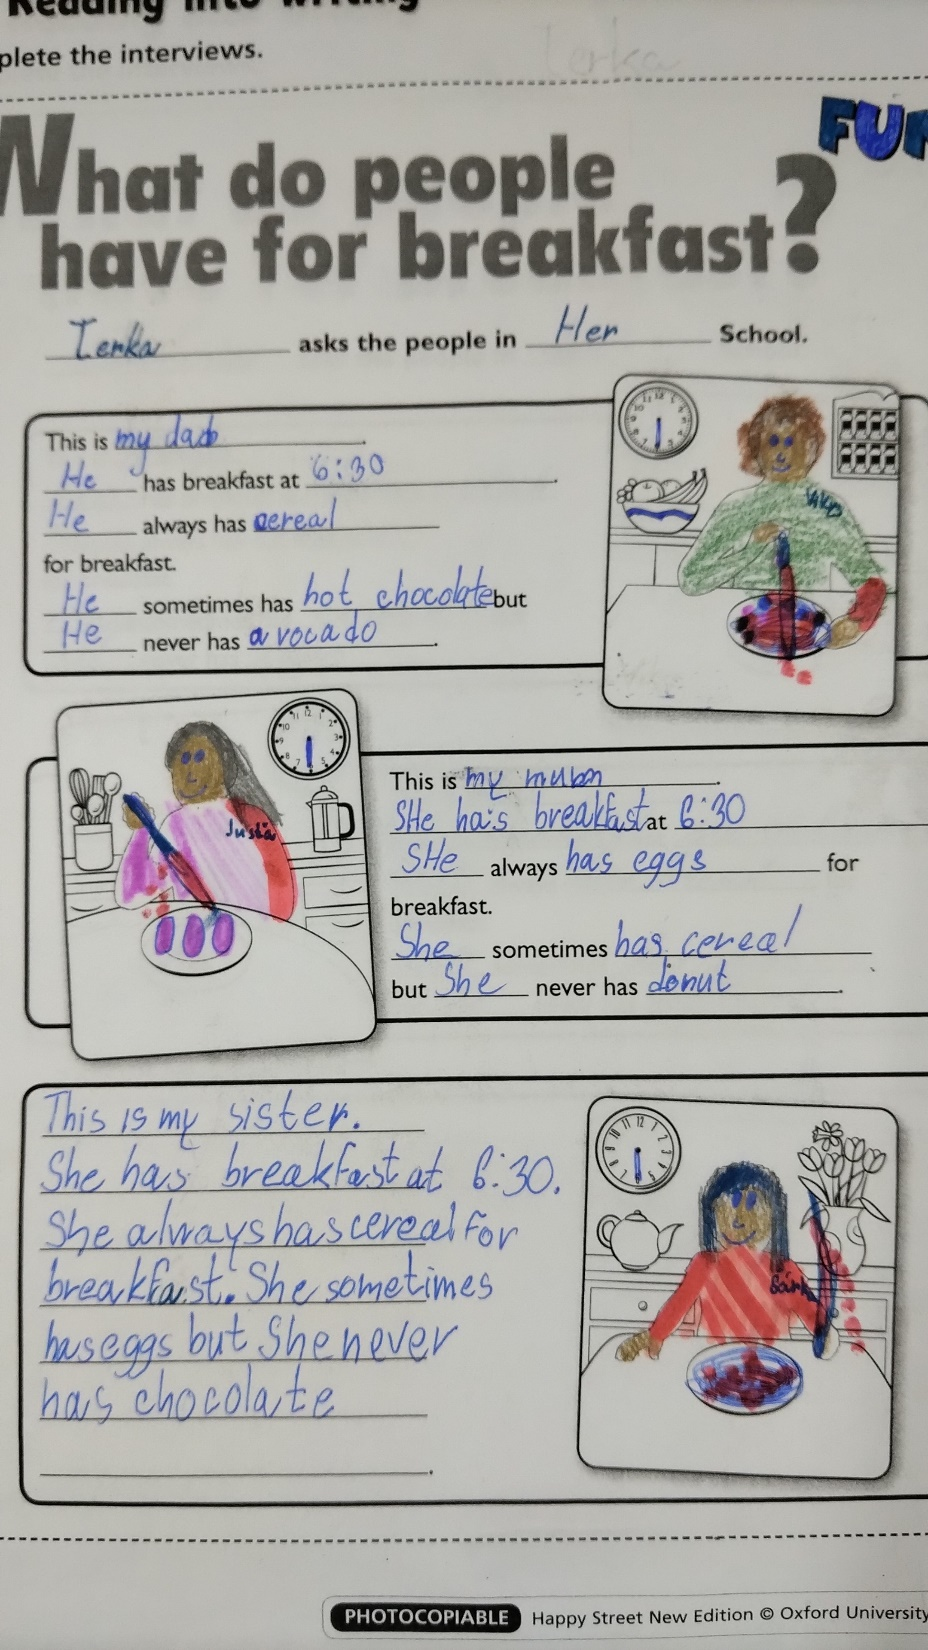 Reading into writing
plete the interviews.
Terka
FUN
What do people
have for breakfast?
Terka asks the people in Her School.
This is my dad.
He has breakfast at 6:30.
He always has cereal
for breakfast.
He sometimes has hot chocolate but
He never has avocado.
This is my mum.
SHe has breakfast at 6:30
SHe always has eggs for
breakfast.
She sometimes has cereal
but She never has donut.
Justa
This is my sister.
She has breakfast at 6:30.
She always has cereal for
breakfast. She sometimes
has eggs but She never
has chocolate
.
Sárka
PHOTOCOPIABLE Happy Street New Edition © Oxford University